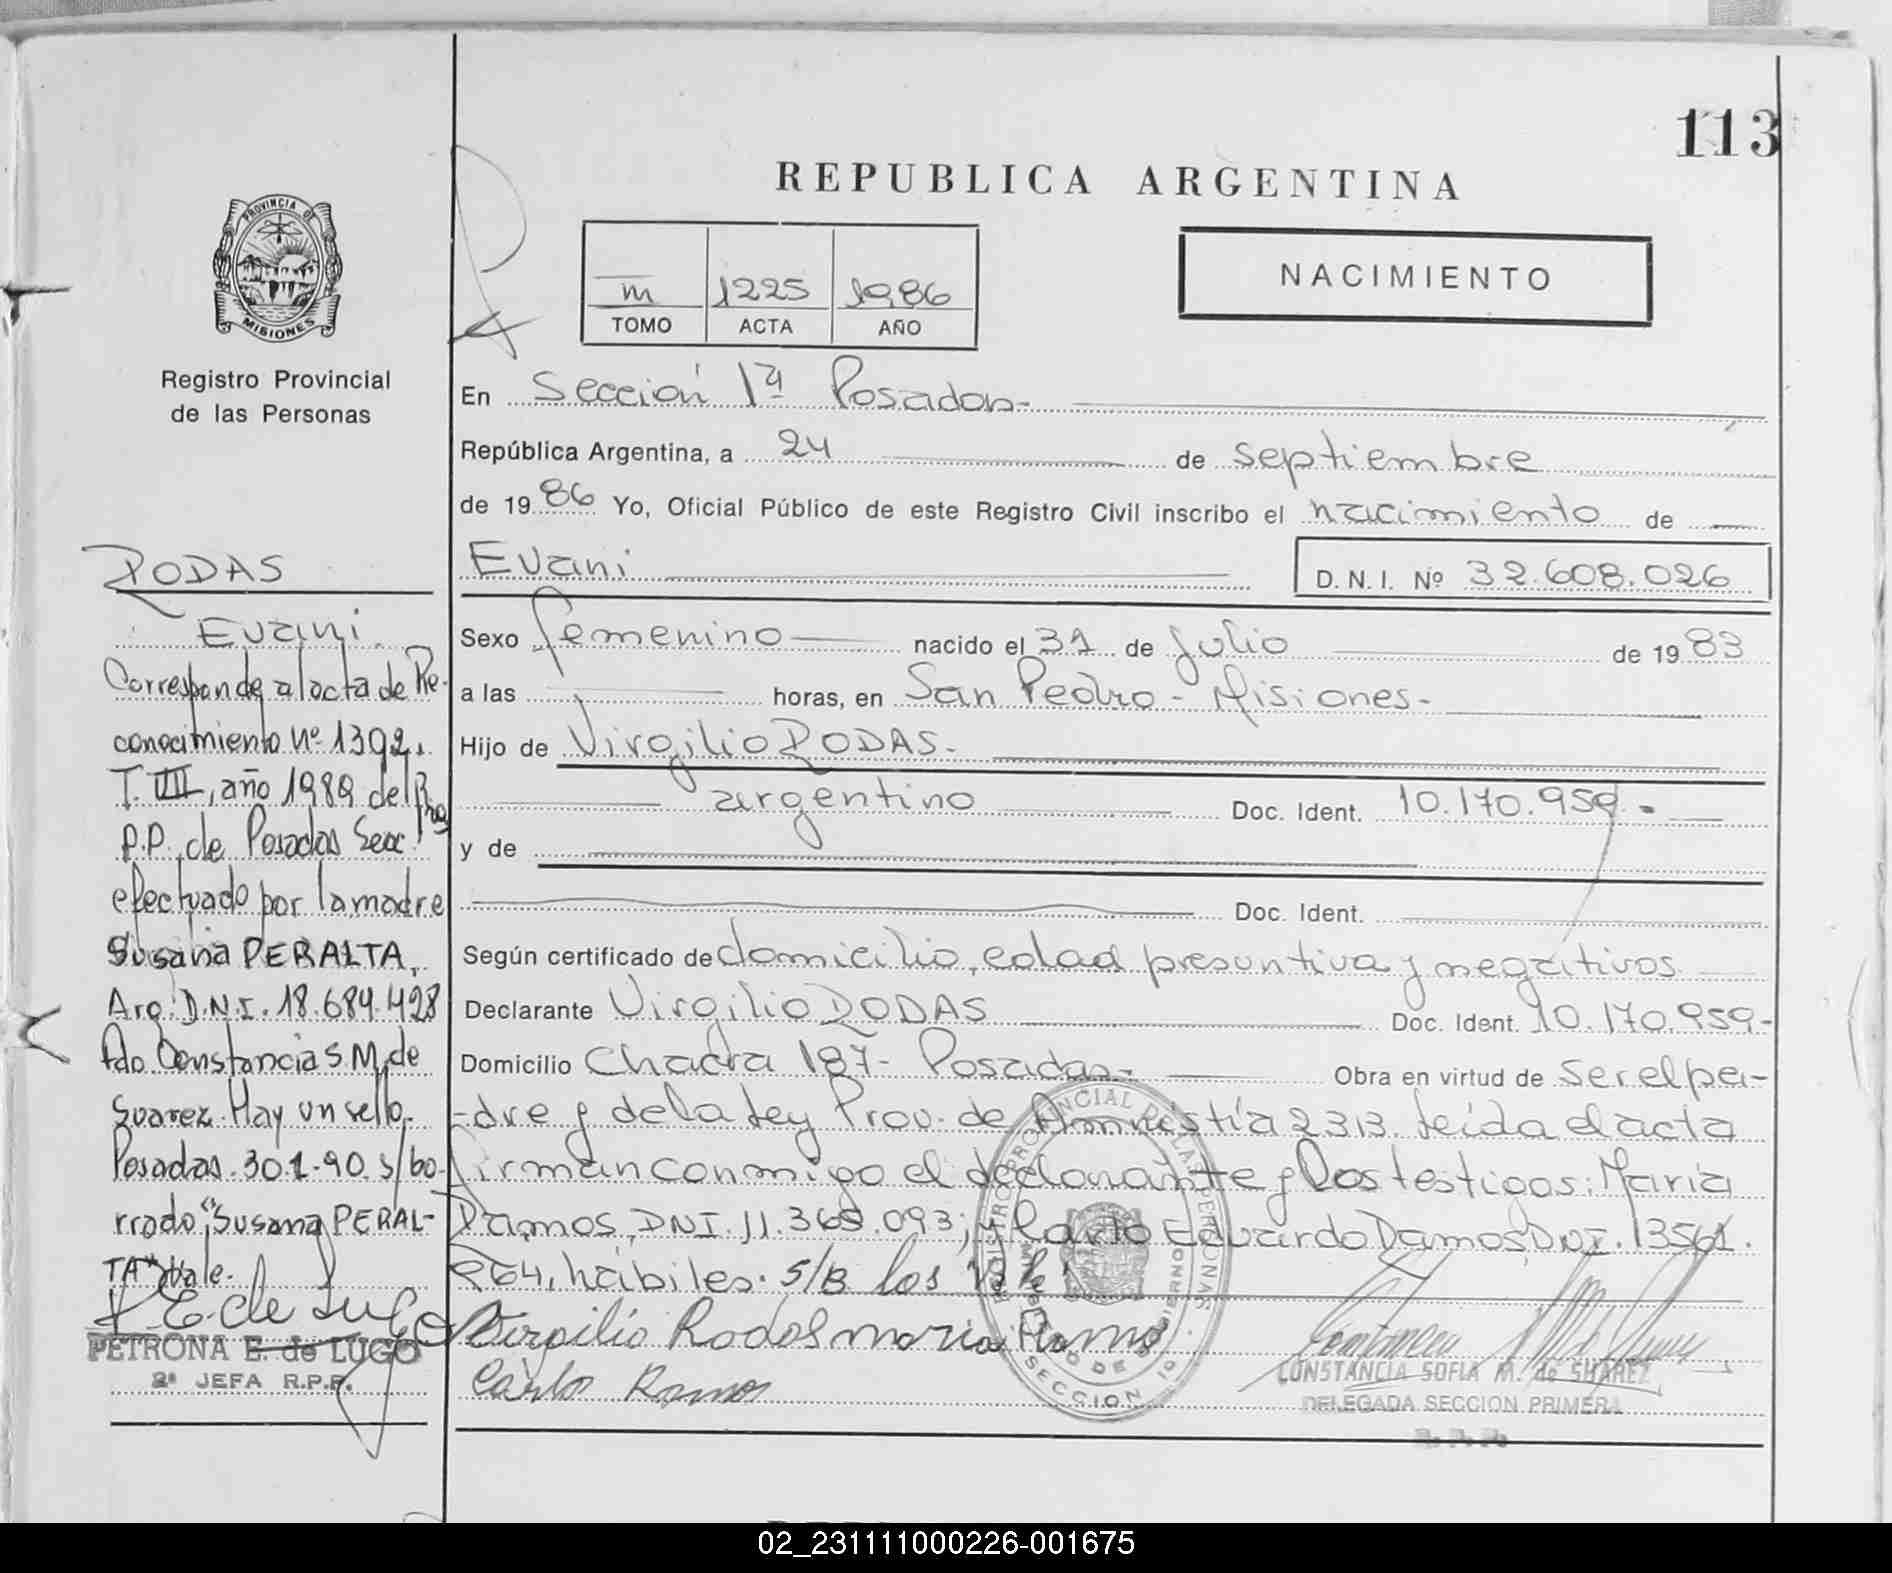 113
REPUBLICA ARGENTINA
NACIMIENTO
m 1225 1986
TOMO ACTA AÑO
PROVINCIA DE
MISIONES
Registro Provincial
de las Personas
RODAS
Evani
Corresponde al acta de Re-
conocimiento Nº 1392,
T. VII, año 1989 del
P.P. de Posadas Secc
efectuado por la madre
Susana PERALTA,
Arg. D.N.I. 18.684.428
Fdo Constancia S. M. de
Suarez. Hay un sello.
Posadas. 30-1-90. s/bo-
rrado "Susana PERAL-
TA" Vale.
P. E. de Lugo
PETRONA E. de LUGO
2ª JEFA R.P.P.
En Sección 1ª Posadas-
República Argentina, a 24 de septiembre
de 1986 Yo, Oficial Público de este Registro Civil inscribo el nacimiento de
Evani D. N. I. Nº 32.608.026
Sexo femenino nacido el 31 de Julio de 1983
a las horas, en San Pedro - Misiones-
Hijo de Virgilio RODAS-
argentino Doc. Ident. 10.170.959.-
y de
Doc. Ident.
Según certificado de domicilio, edad presuntiva y negativos
Declarante Virgilio RODAS Doc. Ident. 10.170.959-
Domicilio Chacra 187- Posadas- Obra en virtud de ser el pa-
-dre y de la Ley Prov. de Amnistía 2313. Leída el acta
firman conmigo el declarante y los testigos: María
Ramos, DNI. 11.368.093; y Carlo Eduardo Ramos DNI. 13561.
264, hábiles. S/B los
Birgilio Rodas maria Ramos
Carlos Ramos
SECCION 1º
CONSTANCIA SOFIA M. de SUAREZ
DELEGADA SECCION PRIMERA
R. P. P.
02_231111000226-001675